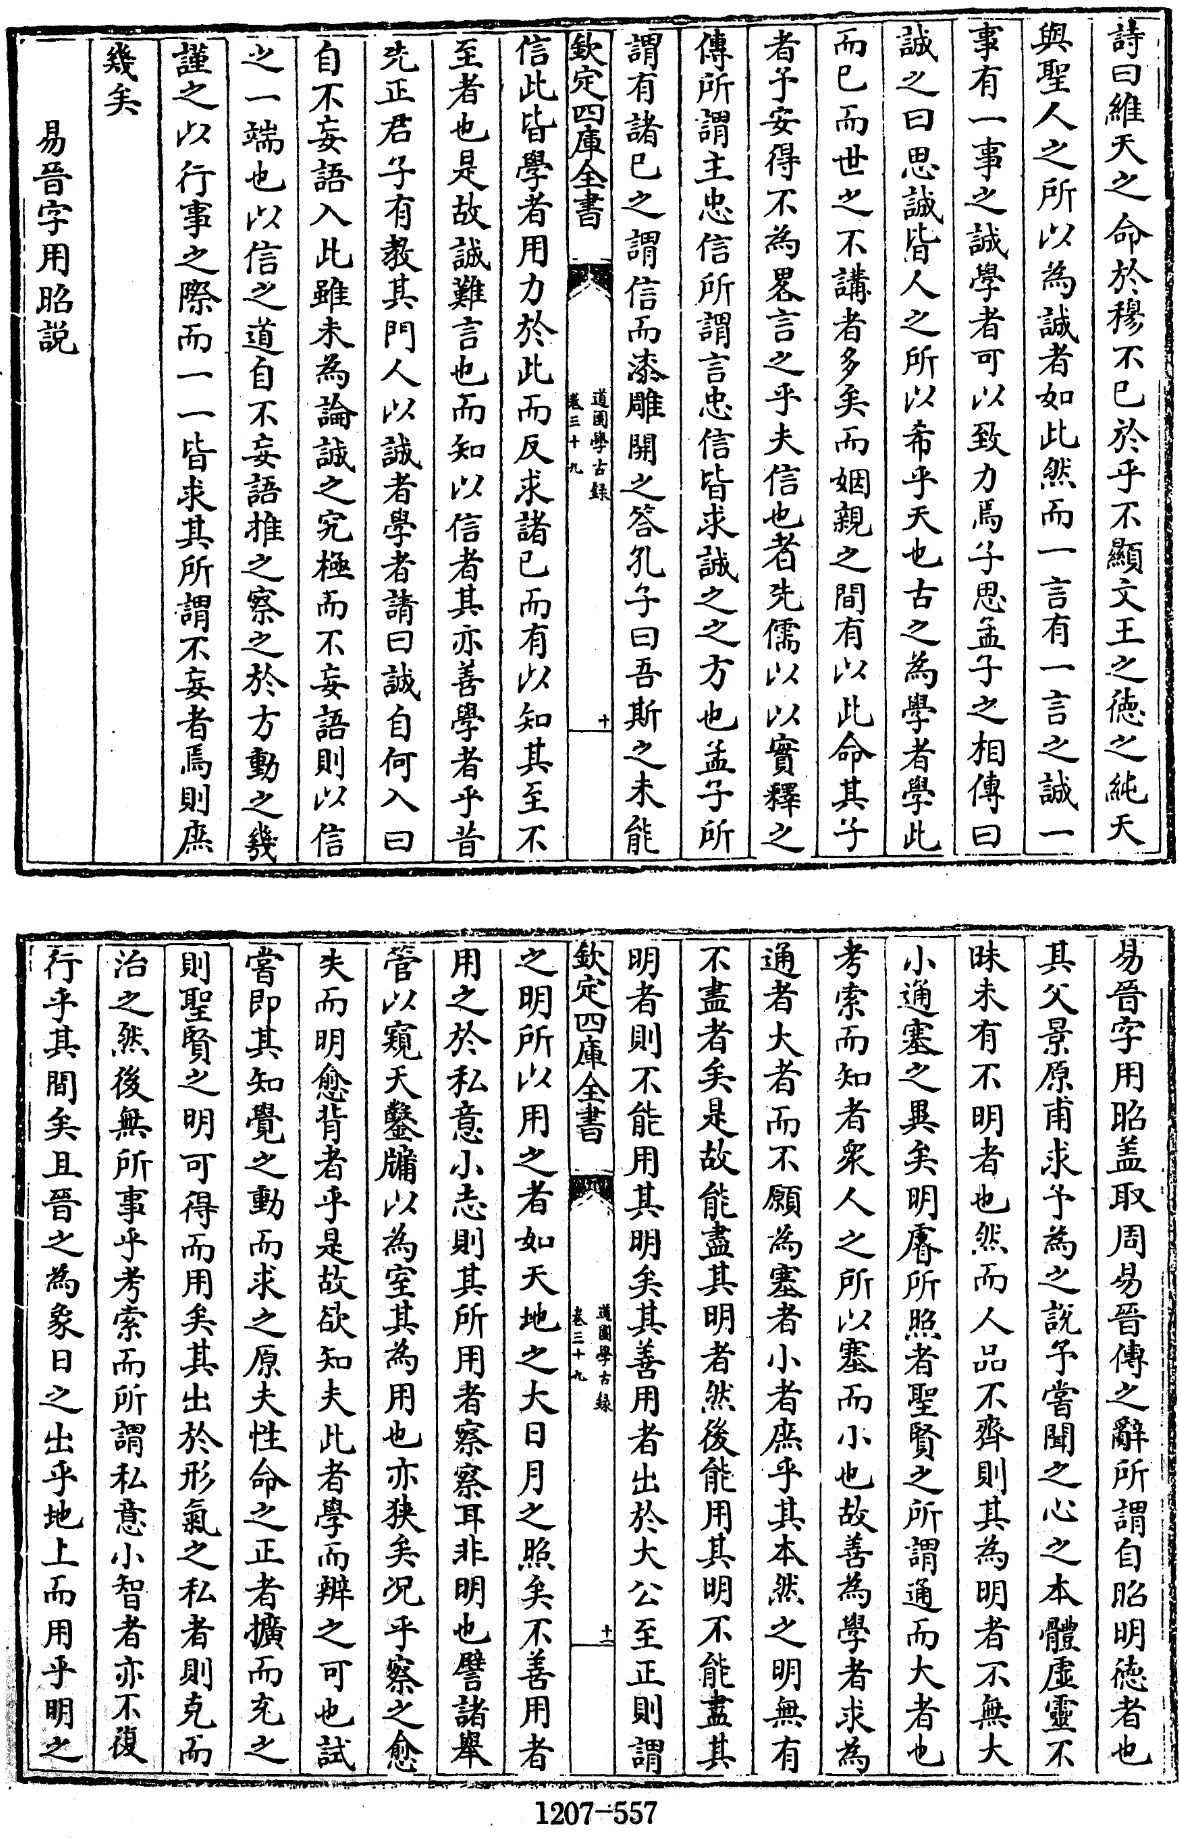 詩曰維天之命於穆不已於乎不顯文王之徳之純天
與聖人之所以為誠者如此然而一言有一言之誠一
事有一事之誠學者可以致力焉子思孟子之相傳曰
誠之曰思誠皆人之所以希乎天也古之為學者學此
而已而世之不講者多矣而姻親之間有以此命其子
者予安得不為畧言之乎夫信也者先儒以以實釋之
傳所謂主忠信所謂言忠信皆求誠之之方也孟子所
謂有諸已之謂信而漆雕開之答孔子曰吾斯之未能
欽定四庫全書
道園學古録
卷三十九
十
信此皆學者用力於此而反求諸已而有以知其至不
至者也是故誠難言也而知以信者其亦善學者乎昔
先正君子有教其門人以誠者學者請曰誠自何入曰
自不妄語入此雖未為論誠之究極而不妄語則以信
之一端也以信之道自不妄語推之察之於方動之幾
謹之以行事之際而一一皆求其所謂不妄者焉則庶
幾矣
易晉字用昭説
易晉字用昭盖取周易晉傳之辭所謂自昭明徳者也
其父景原甫求予為之説予嘗聞之心之本體虛靈不
昧未有不明者也然而人品不齊則其為明者不無大
小通塞之異矣明睿所照者聖賢之所謂通而大者也
考索而知者衆人之所以塞而小也故善為學者求為
通者大者而不願為塞者小者庶乎其本然之明無有
不盡者矣是故能盡其明者然後能用其明不能盡其
明者則不能用其明矣其善用者出於大公至正則謂
欽定四庫全書
道園學古録
卷三十九
十一
之明所以用之者如天地之大日月之照矣不善用者
用之於私意小志則其所用者察察耳非明也譬諸舉
管以窺天鑿牖以為室其為用也亦狹矣况乎察之愈
失而明愈背者乎是故欲知夫此者學而辨之可也試
嘗即其知覺之動而求之原夫性命之正者擴而充之
則聖賢之明可得而用矣其出於形氣之私者則克而
治之然後無所事乎考索而所謂私意小智者亦不復
行乎其間矣且晉之為象日之出乎地上而用乎明之
1207-557